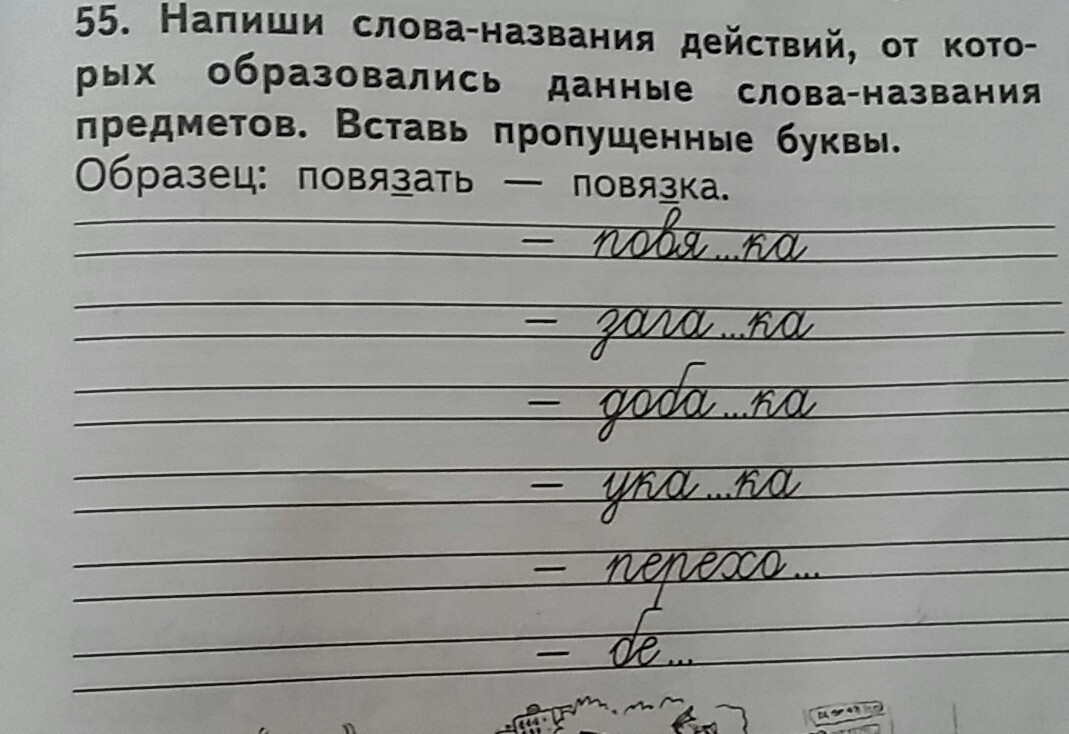 55. Напиши слова-названия действий, от кото-
рых образовались данные слова-названия
предметов. Вставь пропущенные буквы.
Образец: повязать — повязка.
— повя...ка
— зага...ка
— доба...ка
— ука...ка
— перехо...
— бе...